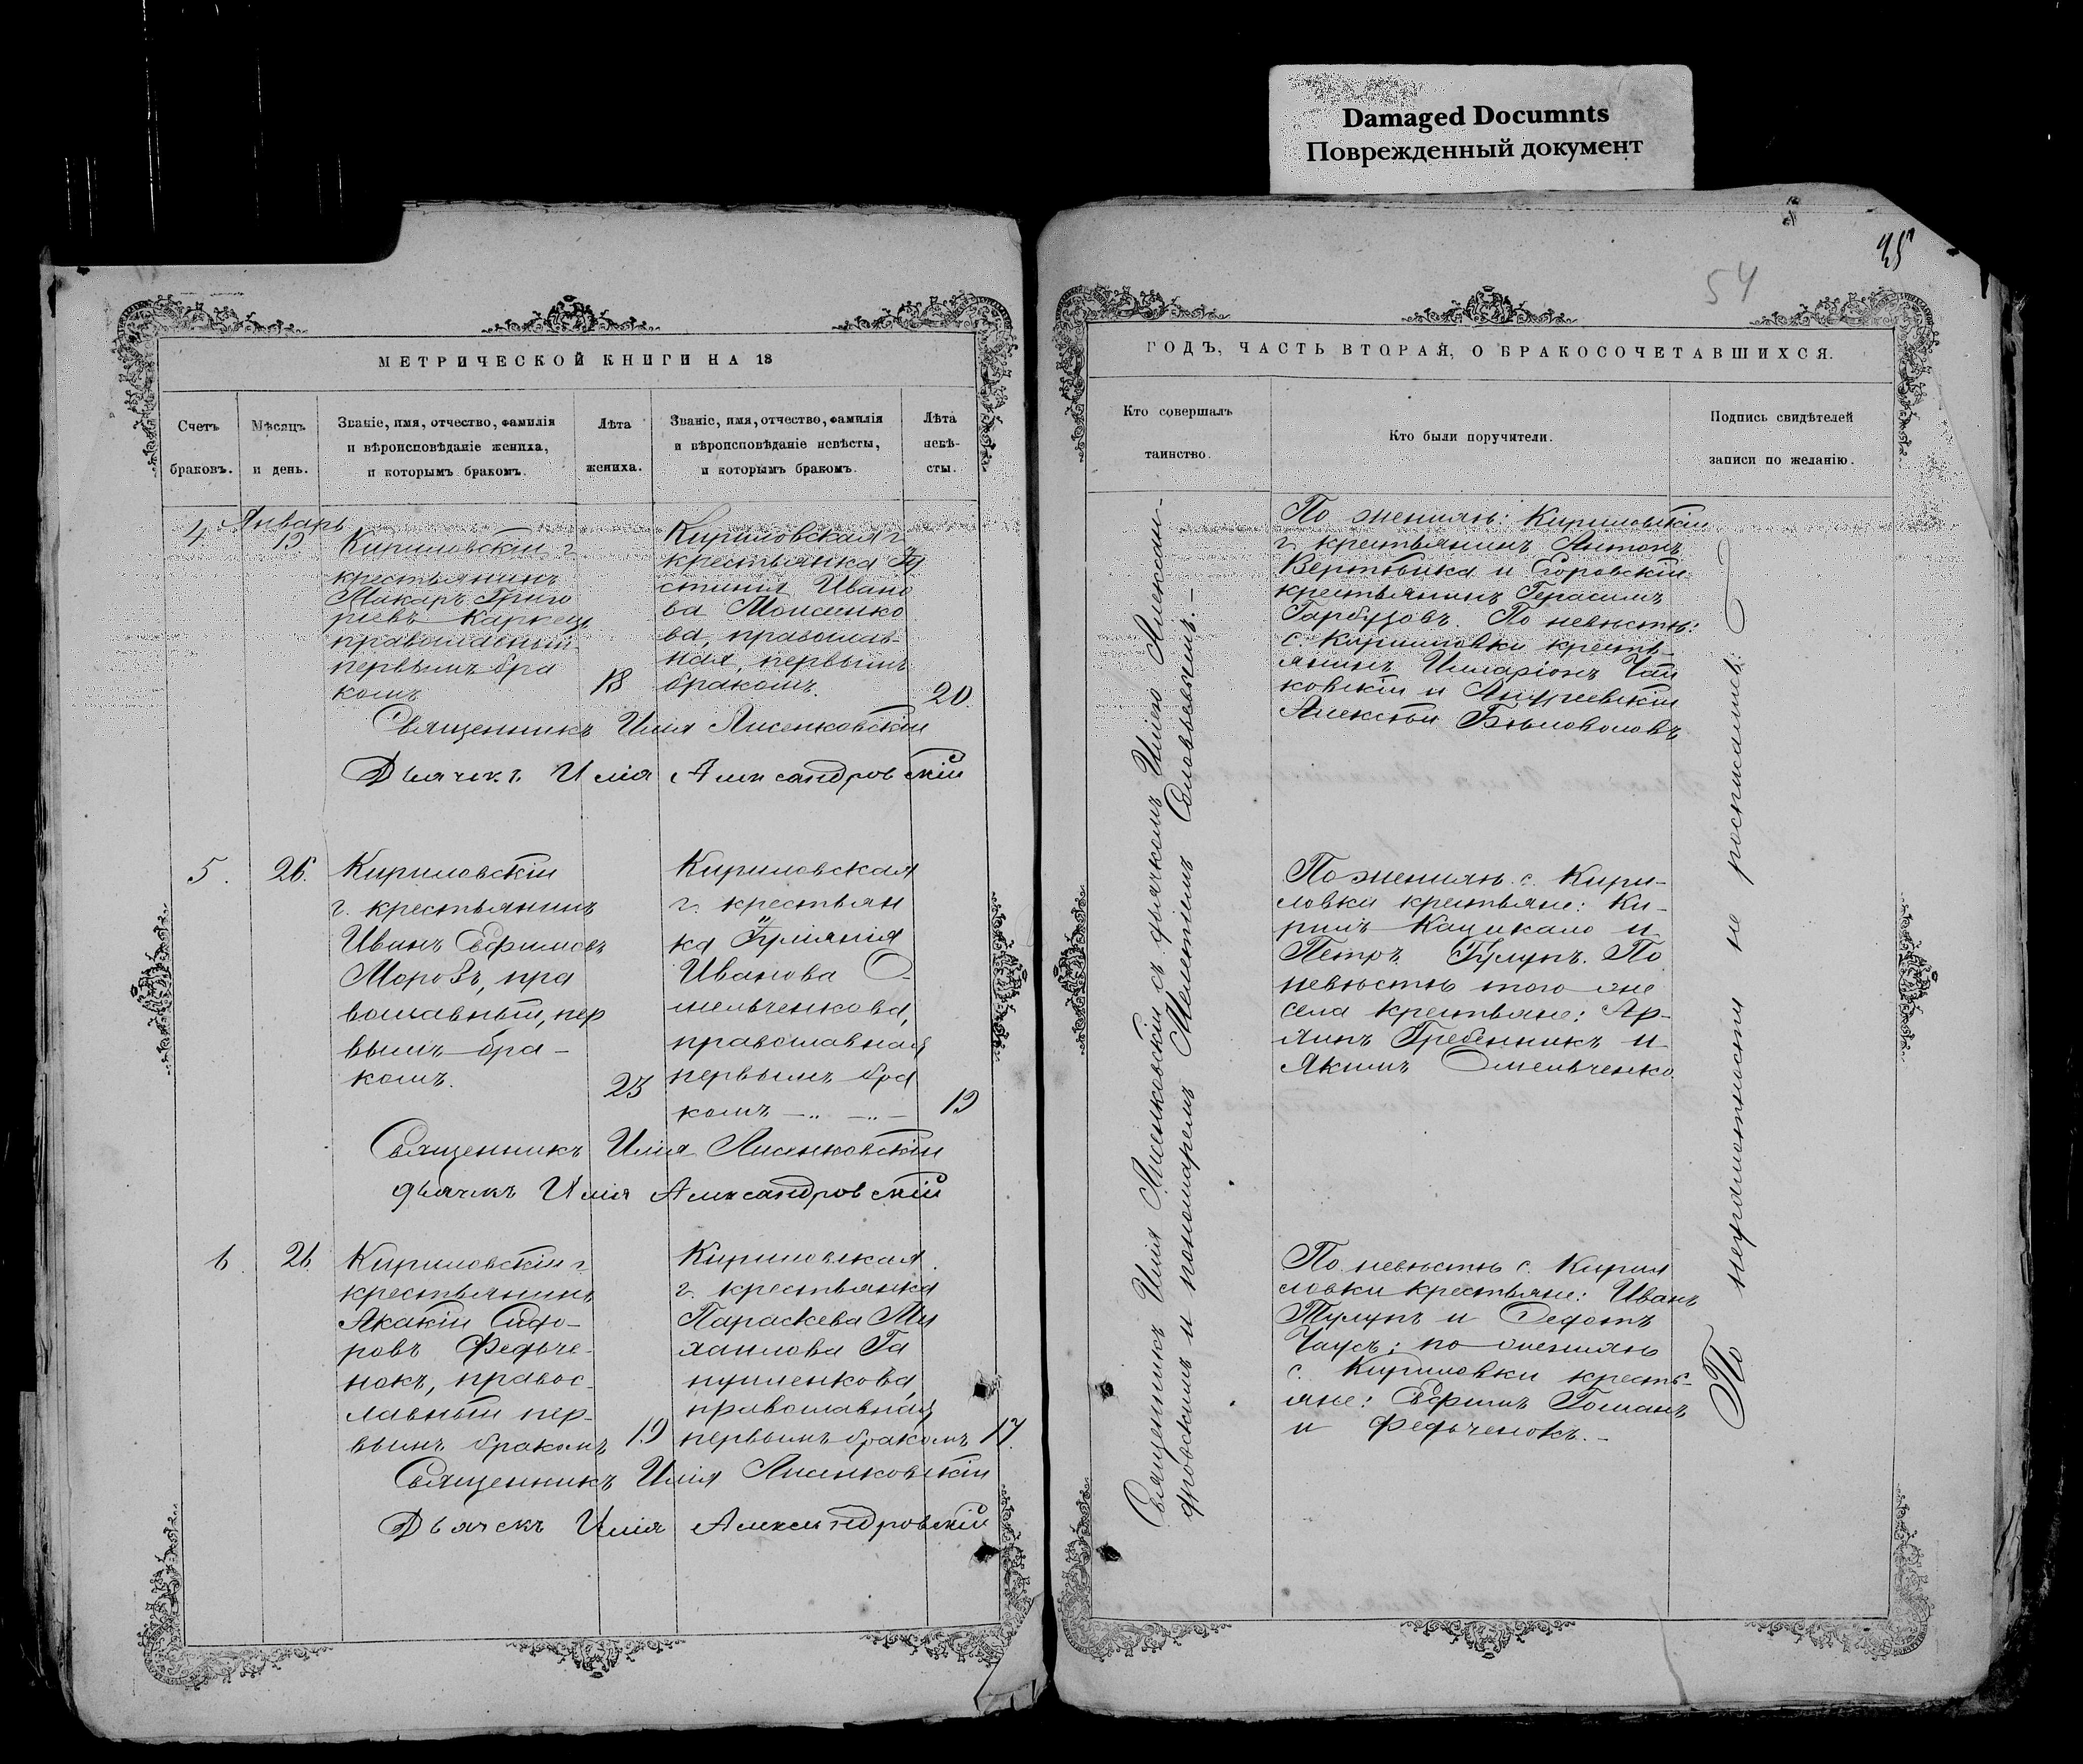 Damaged Documnts
Поврежденный документ
25
54
МЕТРИЧЕСКОЙ КНИГИ НА 18
Счетъ браковъ.
Мѣсяцъ и день.
Званіе, имя, отчество, фамилія
и вѣроисповѣданіе жениха,
и которымъ бракомъ.
Лѣта жениха.
Званіе, имя, отчество, фамилія
и вѣроисповѣданіе невѣсты,
и которымъ бракомъ.
Лѣта
невѣ-
сты.
4
Январь
19
Кириловскій г
крестьянинъ
Макаръ Григо
рьевъ
православный
первымъ бра
комъ
18
Кириловская г
крестьянка Iу
стинія Ивано
ва Моисенко
ва, правосла-
ная, первымъ
бракомъ.
20.
Священникъ Илія Лисенковскій
Дьячекъ Илія Александровскій
5.
26.
Кириловскій
г. крестьянинъ
Иванъ Ефимовъ
Морозъ, пра
вославный, пер
вымъ бра-
комъ.
23
Кириловская
г. крестьян
ка Iуліанія
Иванова О-
мельченкова,
православная
первымъ бра
комъ
19
Священникъ Илія Лисенковскій
дьячекъ Илія Александровскій
6.
26
Кириловскій г
крестьянинъ
Акакій Сидо-
ровъ Федьче-
нокъ, правос-
лавный пер-
вымъ бракомъ
19
Кириловская
г. крестьянка
Параскева Ми
хаилова Га
православная
первымъ бракомъ
17.
Священникъ Илія Лисенковскій
Дьячекъ Илія Александровскій
ГОДЪ, ЧАСТЬ ВТОРАЯ, О БРАКОСОЧЕТАВШИХСЯ.
Кто совершалъ
таинство.
Кто были поручители.
Подпись свидѣтелей
записи по желанію.
Священникъ Илія Лисенковскій съ дьячкомъ Иліею Александ-
ровскимъ и пономаремъ Мелетіемъ Соловьевымъ.
По женихѣ: Кириловскій
г. крестьянинъ Антонъ
и Егоровскій
крестьянинъ Герасимъ
Гарбузовъ. По невѣстѣ:
с. Кириловки кресть-
янинъ Иларіонъ Чай
ковскій и
Алексѣй Бѣловоловъ
По женихѣ с. Кири-
ловки крестьяне: Ки-
рилъ и
Петръ Тулупъ. По
невѣстѣ того же
села крестьяне:
Гребенникъ и
Якимъ Омельченко.
По невѣстѣ с. Кирил
ловки крестьяне: Иванъ
Тулупъ и Федотъ
Чаусъ; по женихѣ
с. Кириловки кресть-
яне: Ефимъ Гоманъ
и Федьченокъ.
По неграмотности не росписались.